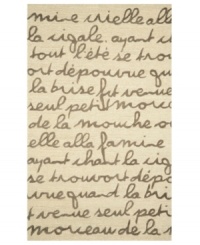 mine crielle alla
la cigale. ayant c
tout l'été se trou
ort dépourvue qu
la brise fut venue
seul petit morce
de la mouche ou
elle alla famine
ayant chant la cig
se trouvort dépo
vue quand la bris
t venue seul peti
morceau de la m